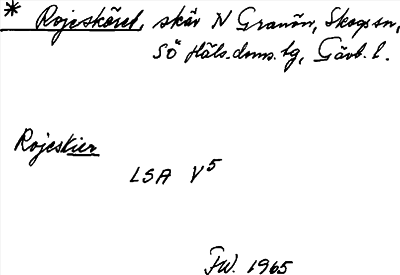 * Rojeskäret, skär N Granön, Skogs sn,
SÖ Häls. doms.tg, Gävb. l.
Rojeskier
LSA V5
FW. 1965